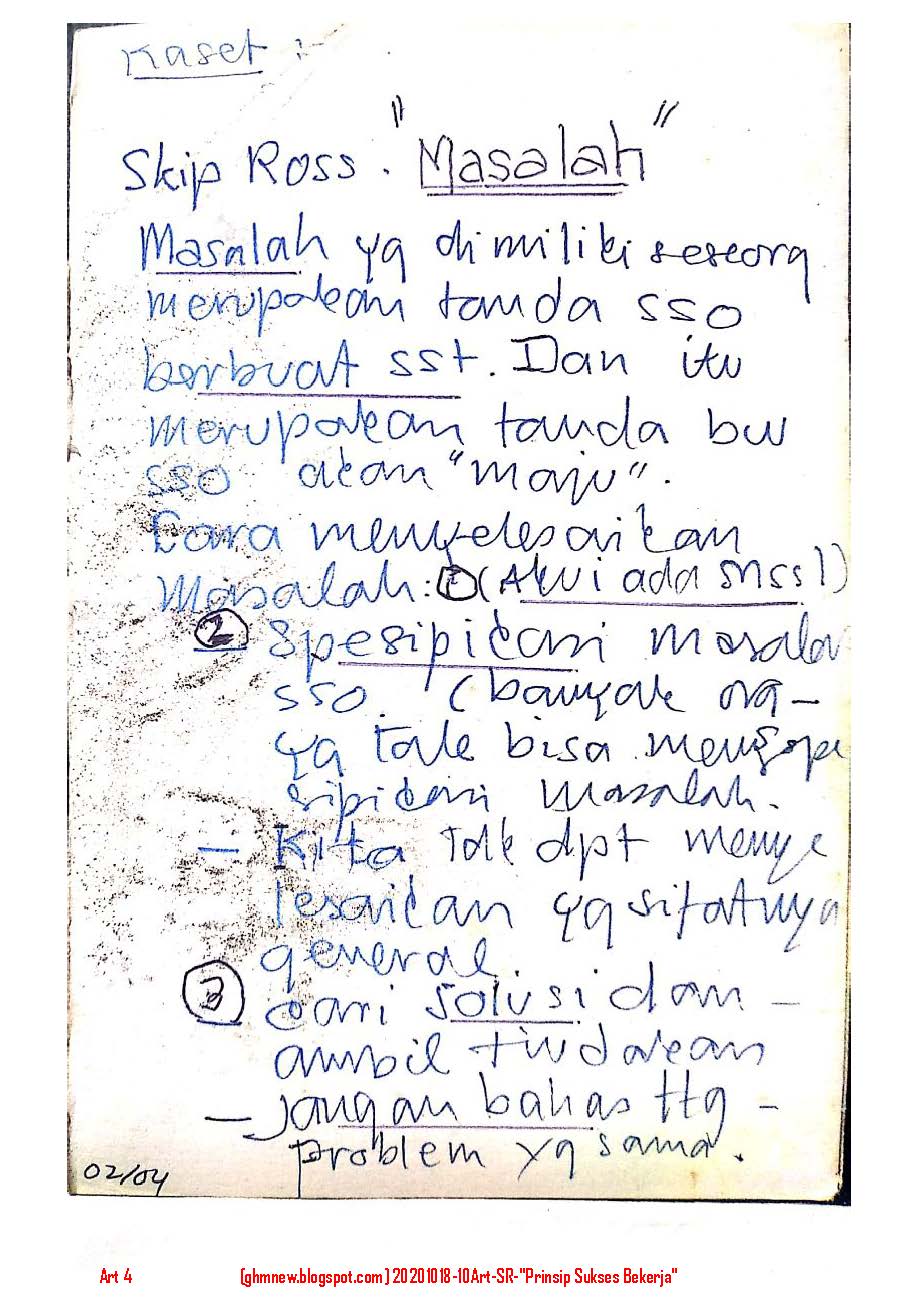 Kaset :-
Skip Ross. "Masalah"
Masalah yg dimiliki seseorg
merupakan tanda sso
berbuat sst. Dan itu
merupakan tanda bw
sso akan "maju".
Cara menyelesaikan
Masalah: ① (Akui ada
② Spesipikasi masalah
sso. (banyak org-
yg tak bisa mengspe
sipikasi masalah.
- Kita Tdk dpt menye
lesaikan yg sifatnya
general.
③ Cari Solusi dan -
ambil tindakan
- Jangan bahas ttg -
problem yg sama.
02/04
Art 4 [ghmnew.blogspot.com] 20201018-10Art-SR-"Prinsip Sukses Bekerja"